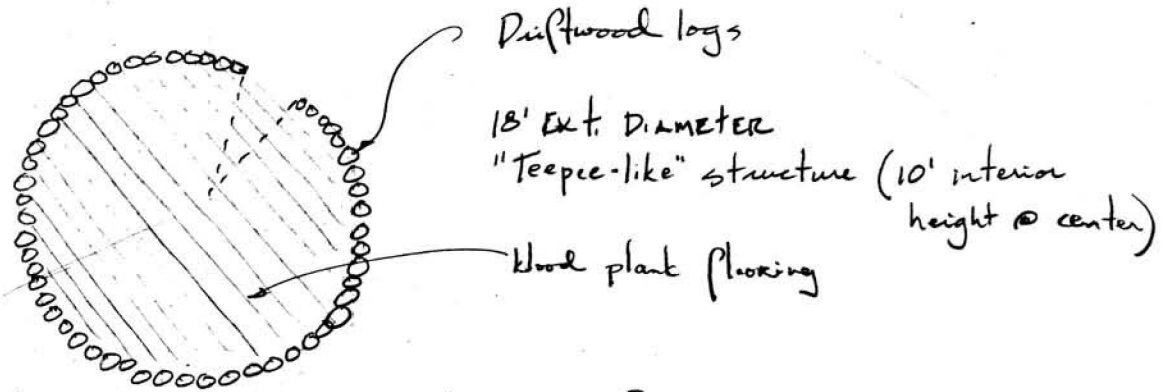 Driftwood logs
18' Ext. DIAMETER
"Teepee-like" structure (10' interior
height @ center)
Wood plank flooring